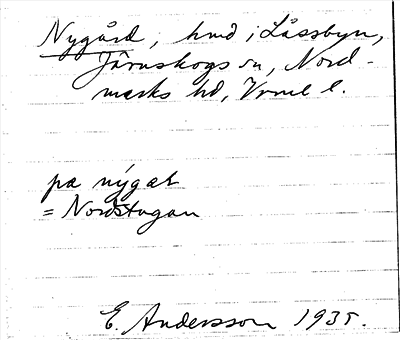 Nygård, hmd i Låssbyn,
Järnskogs sn, Nord-
marks hd, Vrml l.
pa nýgaL
= Nordstugan
E. Andersson 1935.